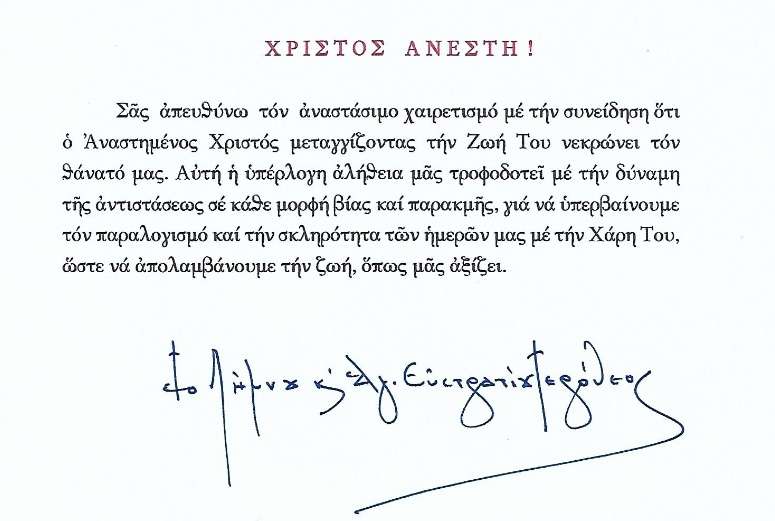 ΧΡΙΣΤΟΣ ΑΝΕΣΤΗ!
Σᾶς ἀπευθύνω τόν ἀναστάσιμο χαιρετισμό μέ τήν συνείδηση ὅτι
ὁ Ἀναστημένος Χριστός μεταγγίζοντας τήν Ζωή Του νεκρώνει τόν
θάνατό μας. Αὐτή ἡ ὑπέρλογη ἀλήθεια μᾶς τροφοδοτεῖ μέ τήν δύναμη
τῆς ἀντιστάσεως σέ κάθε μορφή βίας καί παρακμῆς, γιά νά ὑπερβαίνουμε
τόν παραλογισμό καί τήν σκληρότητα τῶν ἡμερῶν μας μέ τήν Χάρη Του,
ὥστε νά ἀπολαμβάνουμε τήν ζωή, ὅπως μᾶς ἀξίζει.
Λήμνου κ' Ἁγ. Εὐστρατίου Ἱερόθεος